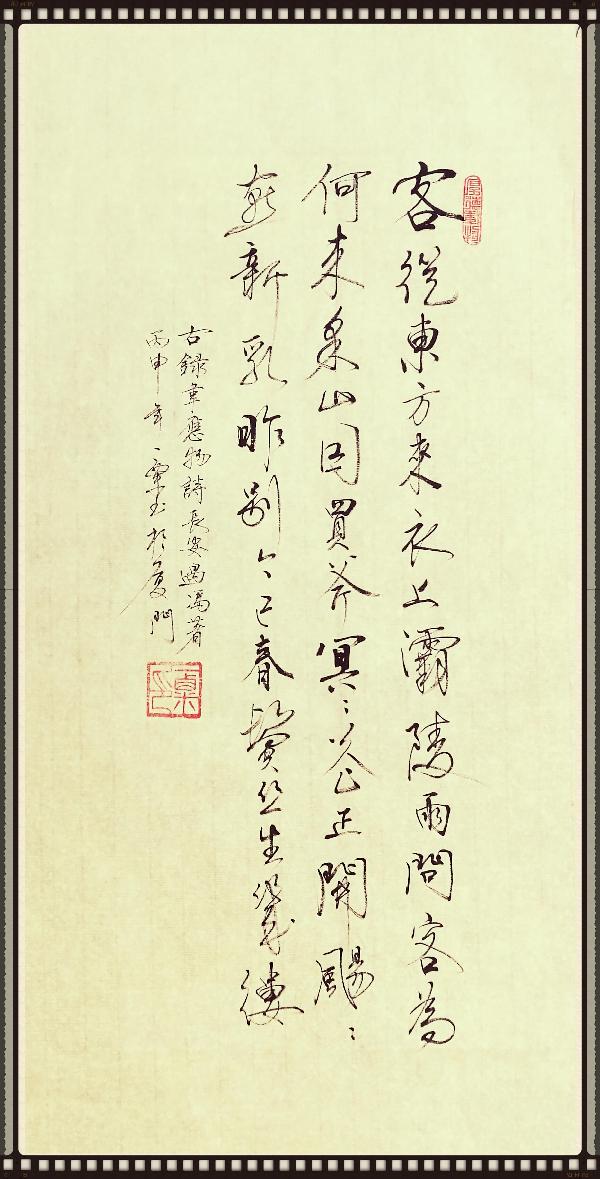 客從東方來衣上灞陵雨問客為
何来采山因買斧冥〻花正開颺〻
燕新乳昨別今已春鬢絲生幾縷
右錄韋應物詩長安遇馮著
丙申年一粟書於廈門